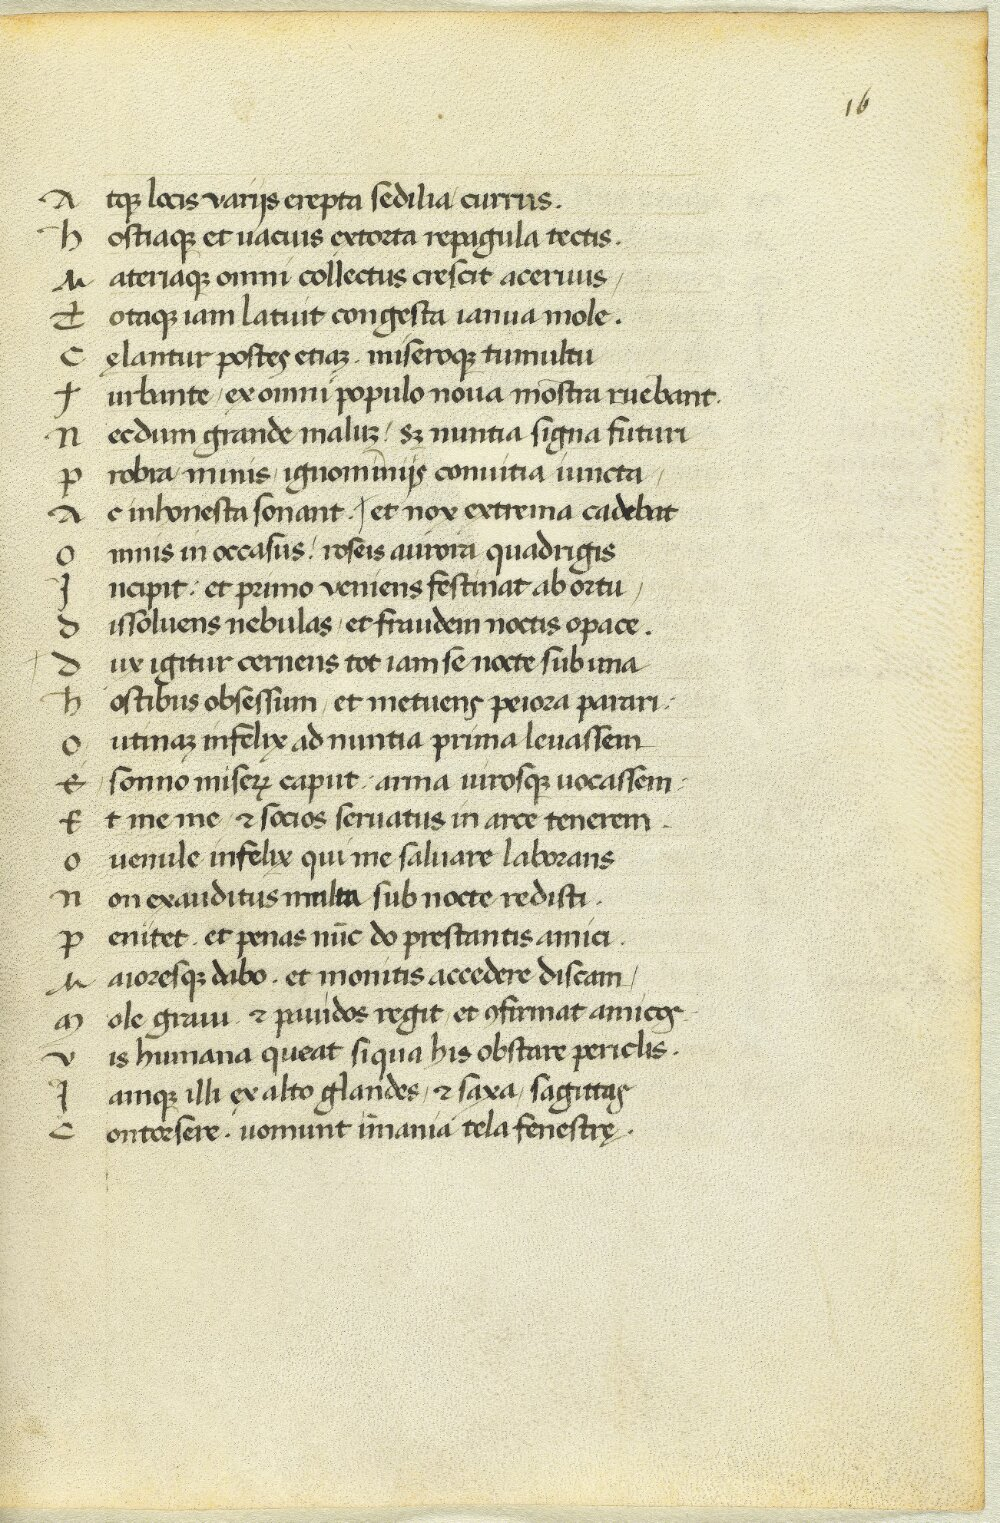 16
A tq; locis varijs erepta sedilia / currus.
h ostiaq; et uacuis extorta repagula tectis.
M ateriaq; omni collectus crescit aceruus /
T otaq; iam latuit congesta ianua mole.
C ęlantur postes etiaʒ. miseroq; tumultu
T urbante / ex omni populo noua mōstra ruebant.
N ecdum grande maluʒ / sʒ nuntia signa futuri
P robra / minis / ignominijs conuitia iuncta /
A c inhonesta sonant. / et nox extrema cadebat
O mnis in occasus / roseis aurora quadrigis
I ncipit. et primo veniens festinat ab ortu /
D issoluens nebulas / et fraudem noctis opace.
D ux igitur cernens tot iam se nocte sub una
h ostibus obsessum / et metuens peiora parari.
O utinaʒ infęlix ad nuntia prima leuassem
E / somno miserꝝ caput. arma uirosq; uocassem.
E t me me / ⁊ socios seruatus in arce tenerem.
O uenule infęlix qui me saluare laborans
N on exauditus multa sub nocte redisti.
P enitet. et penas nūc do prestantis amici.
M aioresq; dabo. et monitis accedere discam /
M ole graui ⁊ pauidos regit et ꝯfirmat amicos
V is humana queat siqua his obstare periclis.
I amq; illi ex alto glandes / ⁊ saxa / sagittas
C ontorsere. uomunt īmania tela fenestrę.